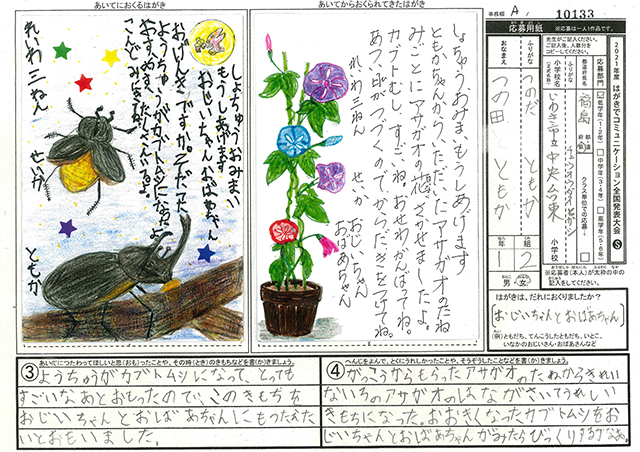 あいてにおくるはがき
しょちゅうおみまい
もうしあげます
おじいちゃんおばあちゃん
おげんきですか。そだてた
ようちゅうがカブトムシになったよ。
こんどみにきてね。
れいわ三ねん せいか
ともか
あいてからおくられてきたはがき
しょちゅうおみまいもうしあげます
ともかちゃんからいただいたアサガオのたね
みごとにアサガオの花をさかせましたよ。
カブトムシ、すごいね。おせわがんばってね。
あつい日がつづくので、からだにきをつけてね。
れいわ三ねん せいか
おじいちゃん
おばあちゃん
事務局 A, 10133
応募用紙
※応募は一人1作品です。
2021年度 はがきでコミュニケーション全国発表大会
先生がご記入ください。
応募部門
低学年(1・2年)
中学年(3・4年)
高学年(5・6年)
都道府県名
福島
クラス単位での応募
ふりがな
小学校名
いわき市立 中央台東
小学校
ふりがな つのだ ともか
おなまえ つの田 ともか
1年 2組
男 女
※応募者(本人)が太枠の中の記入をしてください。
はがきは、だれにおくりましたか?
おじいちゃんとおばあちゃん
(例)ともだち、てんこうしたともだち、いとこ、
いなかのおじいさん・おばあさんなど
③ あいてにつたわってほしいと思(おも)ったことや、その時(とき)のきもちなどを書(か)きましょう。
ようちゅうがカブトムシになって、とっても
すごいなあとおもったので、このきもちを
おじいちゃんとおばあちゃんにもつたえた
いとおもいました。
④ へんじをよんで、とくにうれしかったことや、そうぞうしたことなどを書(か)きましょう。
がっこうからもらったアサガオのたねからきれい
ないろのアサガオのはながさいてうれしい
きもちになった。おおきくなったカブトムシをお
じいちゃんとおばあちゃんがみたらびっくりするかなあ。